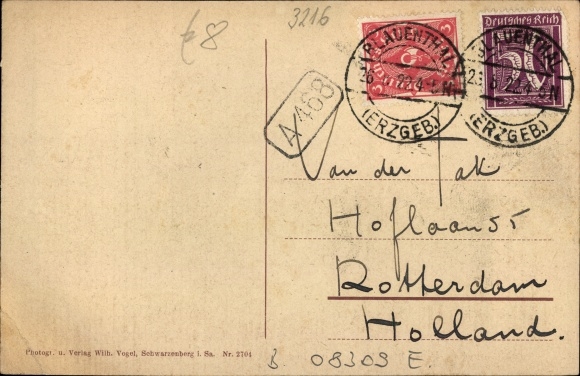 €8
3216
Deutsches Reich
BLAUENTHAL
(ERZGEB.)
BLAUENTHAL
(ERZGEB.)
A468
Van der Tak
Hoflaan 55
Rotterdam
Holland.
Photogr. u. Verlag Wilh. Vogel, Schwarzenberg i. Sa. Nr. 2704
B 08309 E.